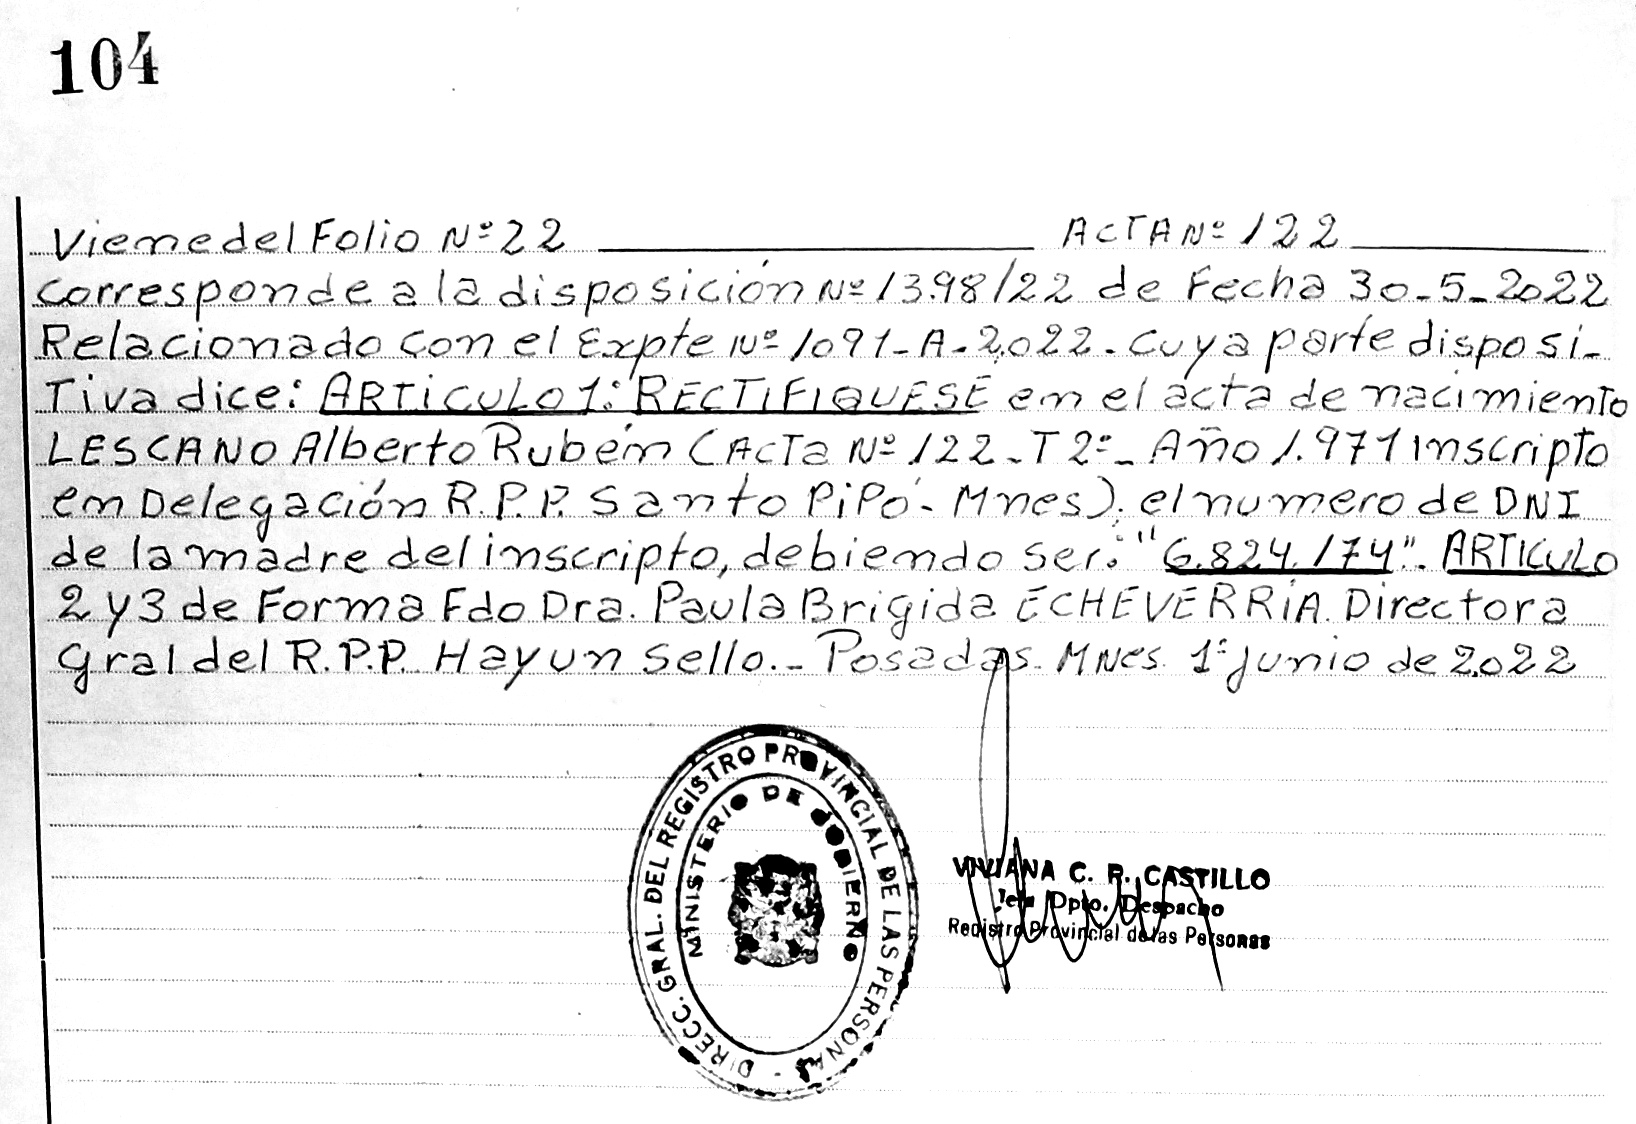 104
Viene del Folio Nº 22 ACTA Nº 122
Corresponde a la disposición Nº 1398/22 de Fecha 30-5-2022
Relacionado con el Expte Nº 1091-A-2.022. Cuya parte disposi-
Tiva dice: ARTICULO 1: RECTIFIQUESE en el acta de nacimiento
LESCANO Alberto Rubén (ACTa Nº 122-T 2º- Año 1.971 inscripto
en Delegación R.P.P. Santo PiPó- Mnes). el numero de DNI
de la madre del inscripto, debiendo ser: "6.824.174". ARTICULO
2 y 3 de Forma Fdo Dra. Paula Brigida ECHEVERRIA. Directora
Gral del R.P.P. Hay un sello.- Posadas. MNes. 1º junio de 2.022
DIRECC. GRAL. DEL REGISTRO PROVINCIAL DE LAS PERSONAS -
MINISTERIO DE GOBIERNO
VIVIANA C. R. CASTILLO
Jefa Dpto. Despacho
Registro Provincial de las Personas